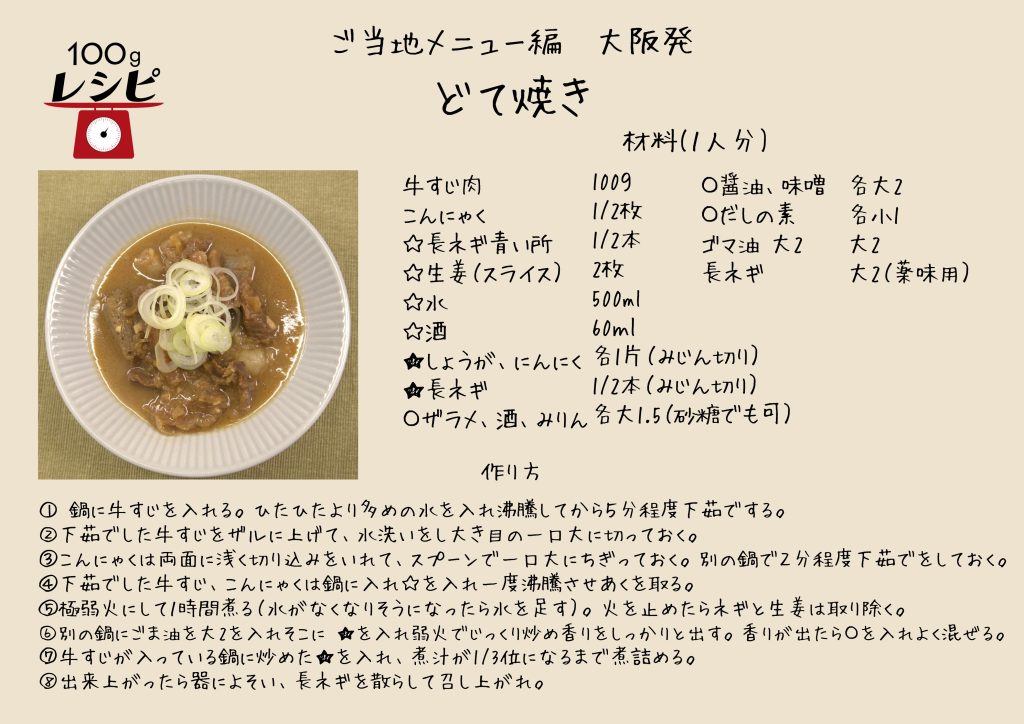 100g
レシピ
ご当地メニュー編 大阪発
どて焼き
材料(1人分)
牛すじ肉 100g
こんにゃく 1/2枚
☆長ネギ青い所 1/2本
☆生姜(スライス) 2枚
☆水 500ml
☆酒 60ml
★しょうが、にんにく 各1片(みじん切り)
★長ネギ 1/2本(みじん切り)
○ザラメ、酒、みりん 各大1.5(砂糖でも可)
○醤油、味噌 各大2
○だしの素 各小1
ゴマ油 大2 大2
長ネギ 大2(薬味用)
作り方
① 鍋に牛すじを入れる。ひたひたより多めの水を入れ沸騰してから5分程度下茹でする。
②下茹でした牛すじをザルに上げて、水洗いをし大き目の一口大に切っておく。
③こんにゃくは両面に浅く切り込みをいれて、スプーンで一口大にちぎっておく。別の鍋で2分程度下茹でをしておく。
④下茹でした牛すじ、こんにゃくは鍋に入れ☆を入れ一度沸騰させあくを取る。
⑤極弱火にして1時間煮る(水がなくなりそうになったら水を足す)。火を止めたらネギと生姜は取り除く。
⑥別の鍋にごま油を大2を入れそこに ★を入れ弱火でじっくり炒め香りをしっかりと出す。香りが出たら○を入れよく混ぜる。
⑦牛すじが入っている鍋に炒めた★を入れ、煮汁が1/3位になるまで煮詰める。
⑧出来上がったら器によそい、長ネギを散らして召し上がれ。